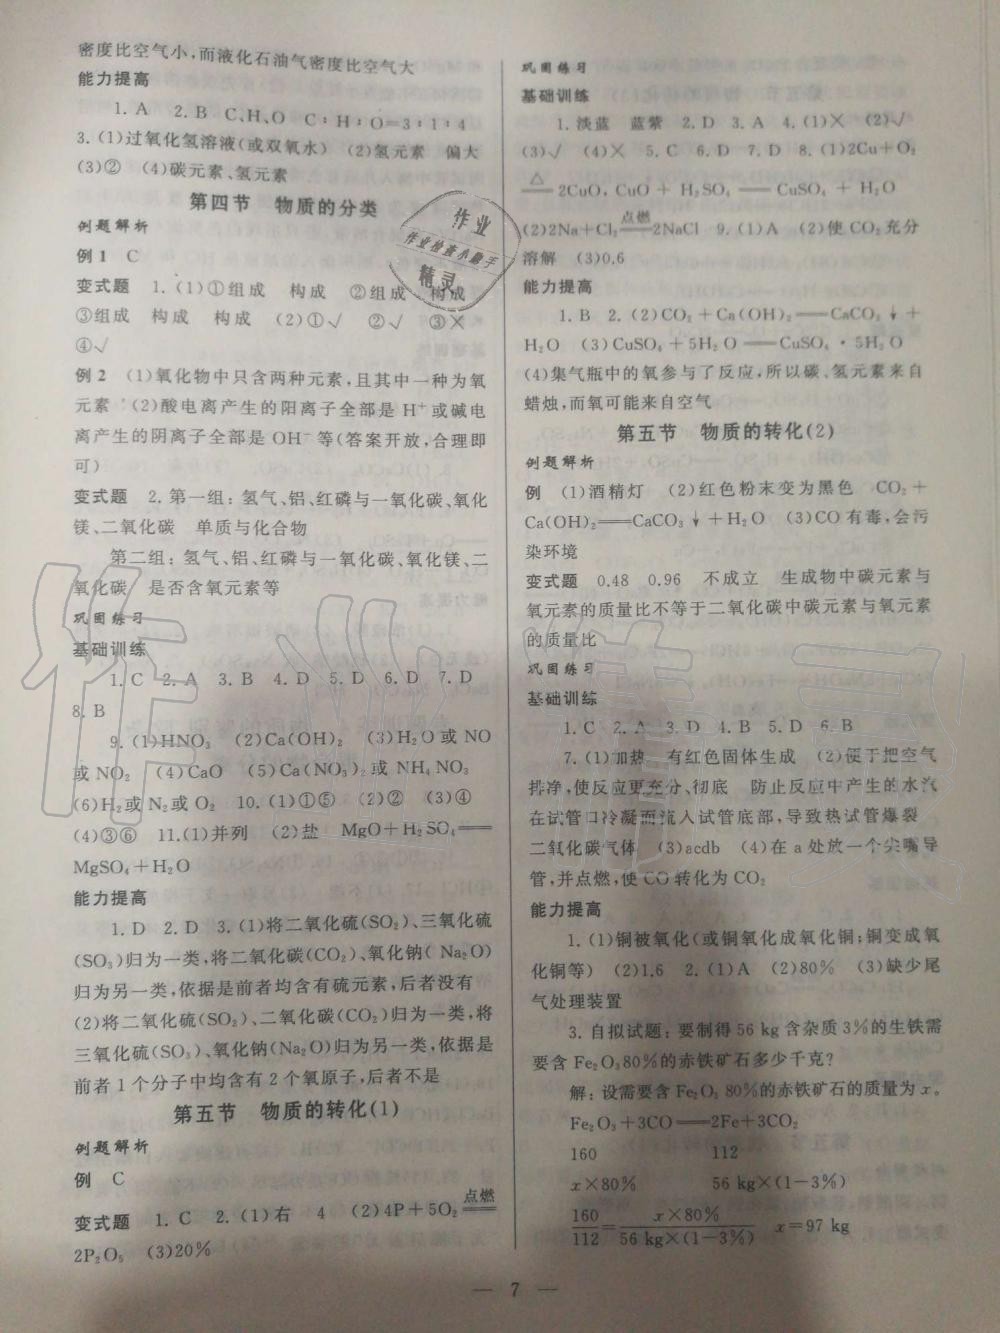 密度比空气小,而液化石油气密度比空气大
能力提高
1. A 2. B C、H、O C∶H∶O=3∶1∶4
3. (1)过氧化氢溶液(或双氧水) (2)氢元素 偏大
(3)② (4)碳元素、氢元素
第四节 物质的分类
例题解析
例 1 C
变式题 1. (1)①组成 构成 ②组成 构成
③组成 构成 构成 (2)①√ ②√ ③×
④√
例 2 (1)氧化物中只含两种元素,且其中一种为氧
元素 (2)酸电离产生的阳离子全部是 H⁺或碱电
离产生的阴离子全部是 OH⁻ 等(答案开放,合理即
可)
变式题 2. 第一组:氢气、铝、红磷与一氧化碳、氧化
镁、二氧化碳 单质与化合物
第二组:氢气、铝、红磷与一氧化碳、氧化镁、二
氧化碳 是否含氧元素等
巩固练习
基础训练
1. C 2. A 3. B 4. D 5. D 6. D 7. D
8. B
9. (1)HNO₃ (2)Ca(OH)₂ (3)H₂O 或 NO
或 NO₂ (4)CaO (5)Ca(NO₃)₂ 或 NH₄NO₃
(6)H₂或 N₂或 O₂ 10. (1)①⑤ (2)② (3)④
(4)③⑥ 11.(1)并列 (2)盐 MgO+H₂SO₄══
MgSO₄+H₂O
能力提高
1. D 2. D 3. (1)将二氧化硫(SO₂)、三氧化硫
(SO₃)归为一类,将二氧化碳(CO₂)、氧化钠(Na₂O)
归为另一类,依据是前者均含有硫元素,后者没有
(2)将二氧化硫(SO₂)、二氧化碳(CO₂)归为一类,将
三氧化硫(SO₃)、氧化钠(Na₂O)归为另一类,依据是
前者 1 个分子中均含有 2 个氧原子,后者不是
第五节 物质的转化(1)
例题解析
例 C
变式题 1. C 2. (1)右 4 (2)4P+5O₂ 点燃══
2P₂O₅ (3)20%
巩固练习
基础训练
1. 淡蓝 蓝紫 2. D 3. A 4. (1)× (2)√
(3)√ (4)× 5. C 6. D 7. D 8. (1)2Cu+O₂
△══2CuO, CuO + H₂SO₄══CuSO₄ + H₂O
(2)2Na+Cl₂ 点燃══2NaCl 9. (1)A (2)使 CO₂ 充分
溶解 (3)0.6
能力提高
1. B 2. (2)CO₂ + Ca(OH)₂══CaCO₃↓+
H₂O (3)CuSO₄+5H₂O══CuSO₄·5H₂O
(4)集气瓶中的氧参与了反应,所以碳、氢元素来自
蜡烛,而氧可能来自空气
第五节 物质的转化(2)
例题解析
例 (1)酒精灯 (2)红色粉末变为黑色 CO₂+
Ca(OH)₂══CaCO₃↓+H₂O (3)CO有毒,会污
染环境
变式题 0.48 0.96 不成立 生成物中碳元素与
氧元素的质量比不等于二氧化碳中碳元素与氧元素
的质量比
巩固练习
基础训练
1. C 2. A 3. D 4. B 5. D 6. B
7. (1)加热 有红色固体生成 (2)便于把空气
排净,使反应更充分、彻底 防止反应中产生的水汽
在试管口冷凝而流入试管底部,导致热试管爆裂
二氧化碳气体 (3)acdb (4)在 a 处放一个尖嘴导
管,并点燃,使 CO 转化为 CO₂
能力提高
1. (1)铜被氧化(或铜氧化成氧化铜;铜变成氧
化铜等) (2)1.6 2. (1)A (2)80% (3)缺少尾
气处理装置
3. 自拟试题:要制得 56 kg 含杂质 3%的生铁需
要含 Fe₂O₃80%的赤铁矿石多少千克?
解:设需要含 Fe₂O₃ 80%的赤铁矿石的质量为 x。
Fe₂O₃+3CO══2Fe+3CO₂
160 112
x×80% 56 kg×(1−3%)
160/112 = x×80%/56 kg×(1−3%) x=97 kg
— 7 —
作业
作业检查小助手
精灵
作业精灵